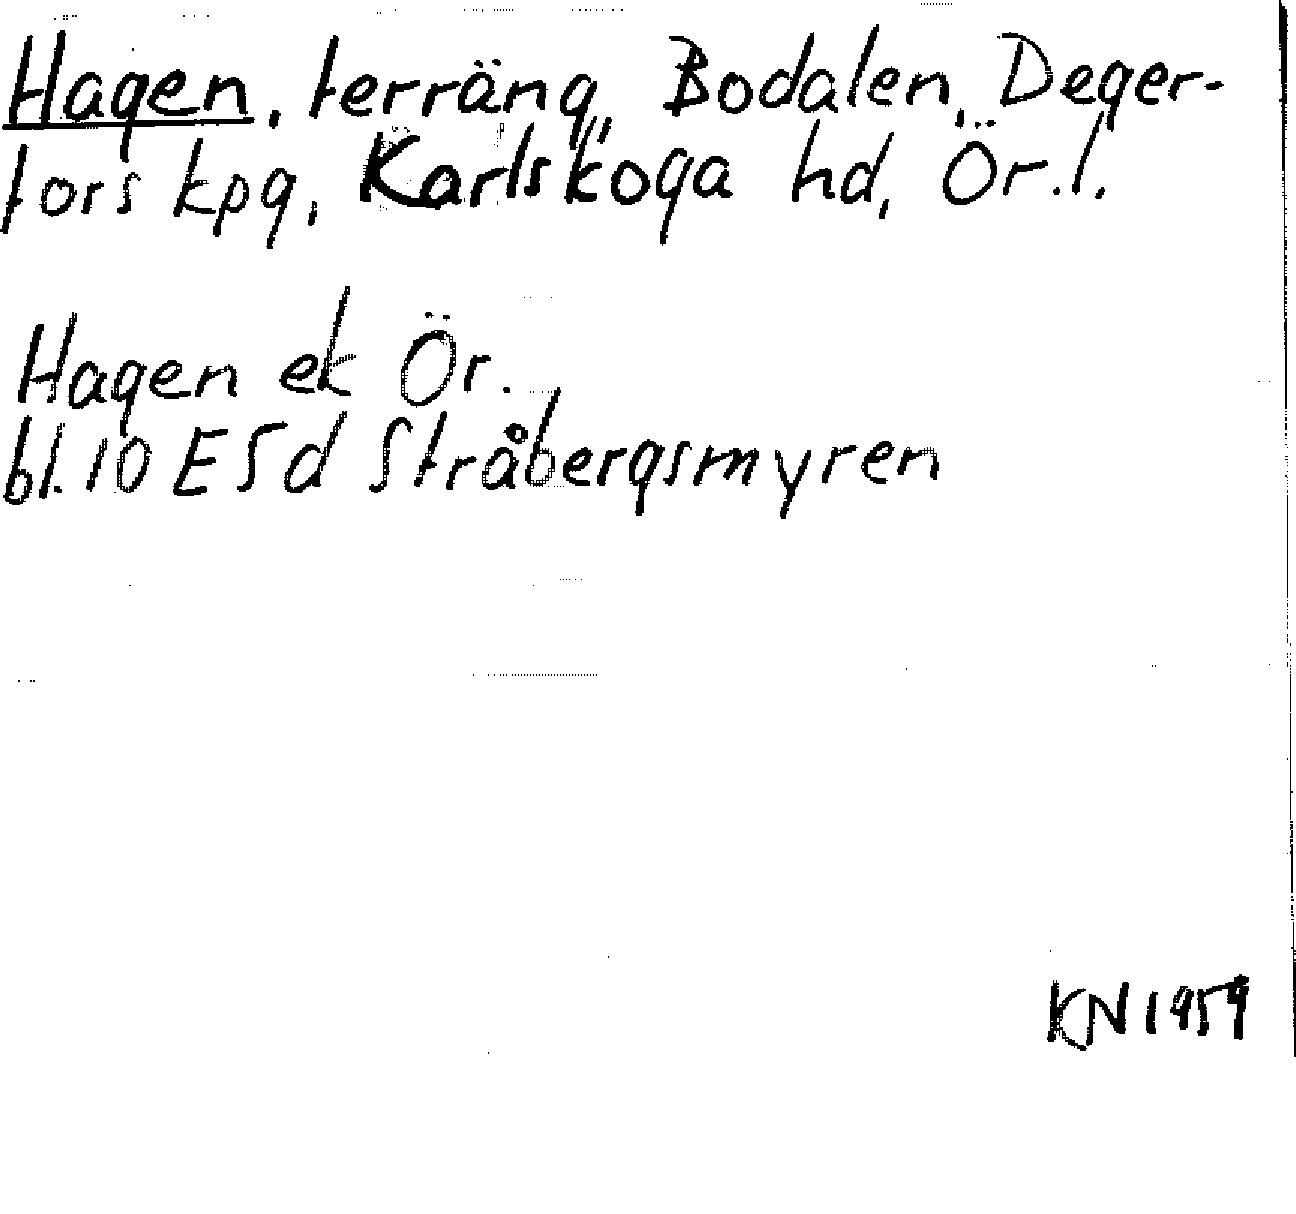 Hagen, terräng, Bodalen, Deger-
fors kpg, Karlskoga hd, Ör.l.
Hagen ek Ör.
bl. 10 E 5 d Stråbergsmyren
KN 1959